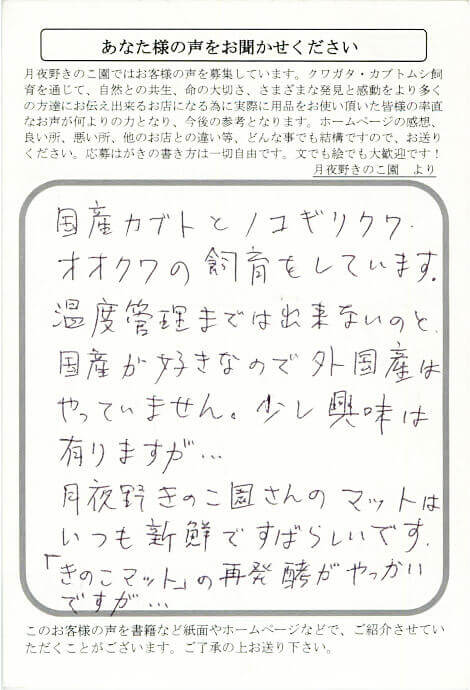 あなた様の声をお聞かせください
月夜野きのこ園ではお客様の声を募集しています。クワガタ・カブトムシ飼
育を通じて、自然との共生、命の大切さ、さまざまな発見と感動をより多く
の方達にお伝え出来るお店になる為に実際に用品をお使い頂いた皆様の率直
なお声が何よりの力となり、今後の参考となります。ホームページの感想、
良い所、悪い所、他のお店との違い等、どんな事でも結構ですので、お送り
ください。応募はがきの書き方は一切自由です。文でも絵でも大歓迎です！
月夜野きのこ園　より
国産カブトとノコギリクワ.
オオクワの飼育をしています.
温度管理までは出来ないのと、
国産が好きなので外国産は
やっていません。少し興味は
有りますが…
月夜野きのこ園さんのマットは
いつも新鮮ですばらしいです.
「きのこマット」の再発酵がやっかい
ですが…
このお客様の声を書籍など紙面やホームページなどで、ご紹介させてい
ただくことがございます。ご了承の上お送り下さい。